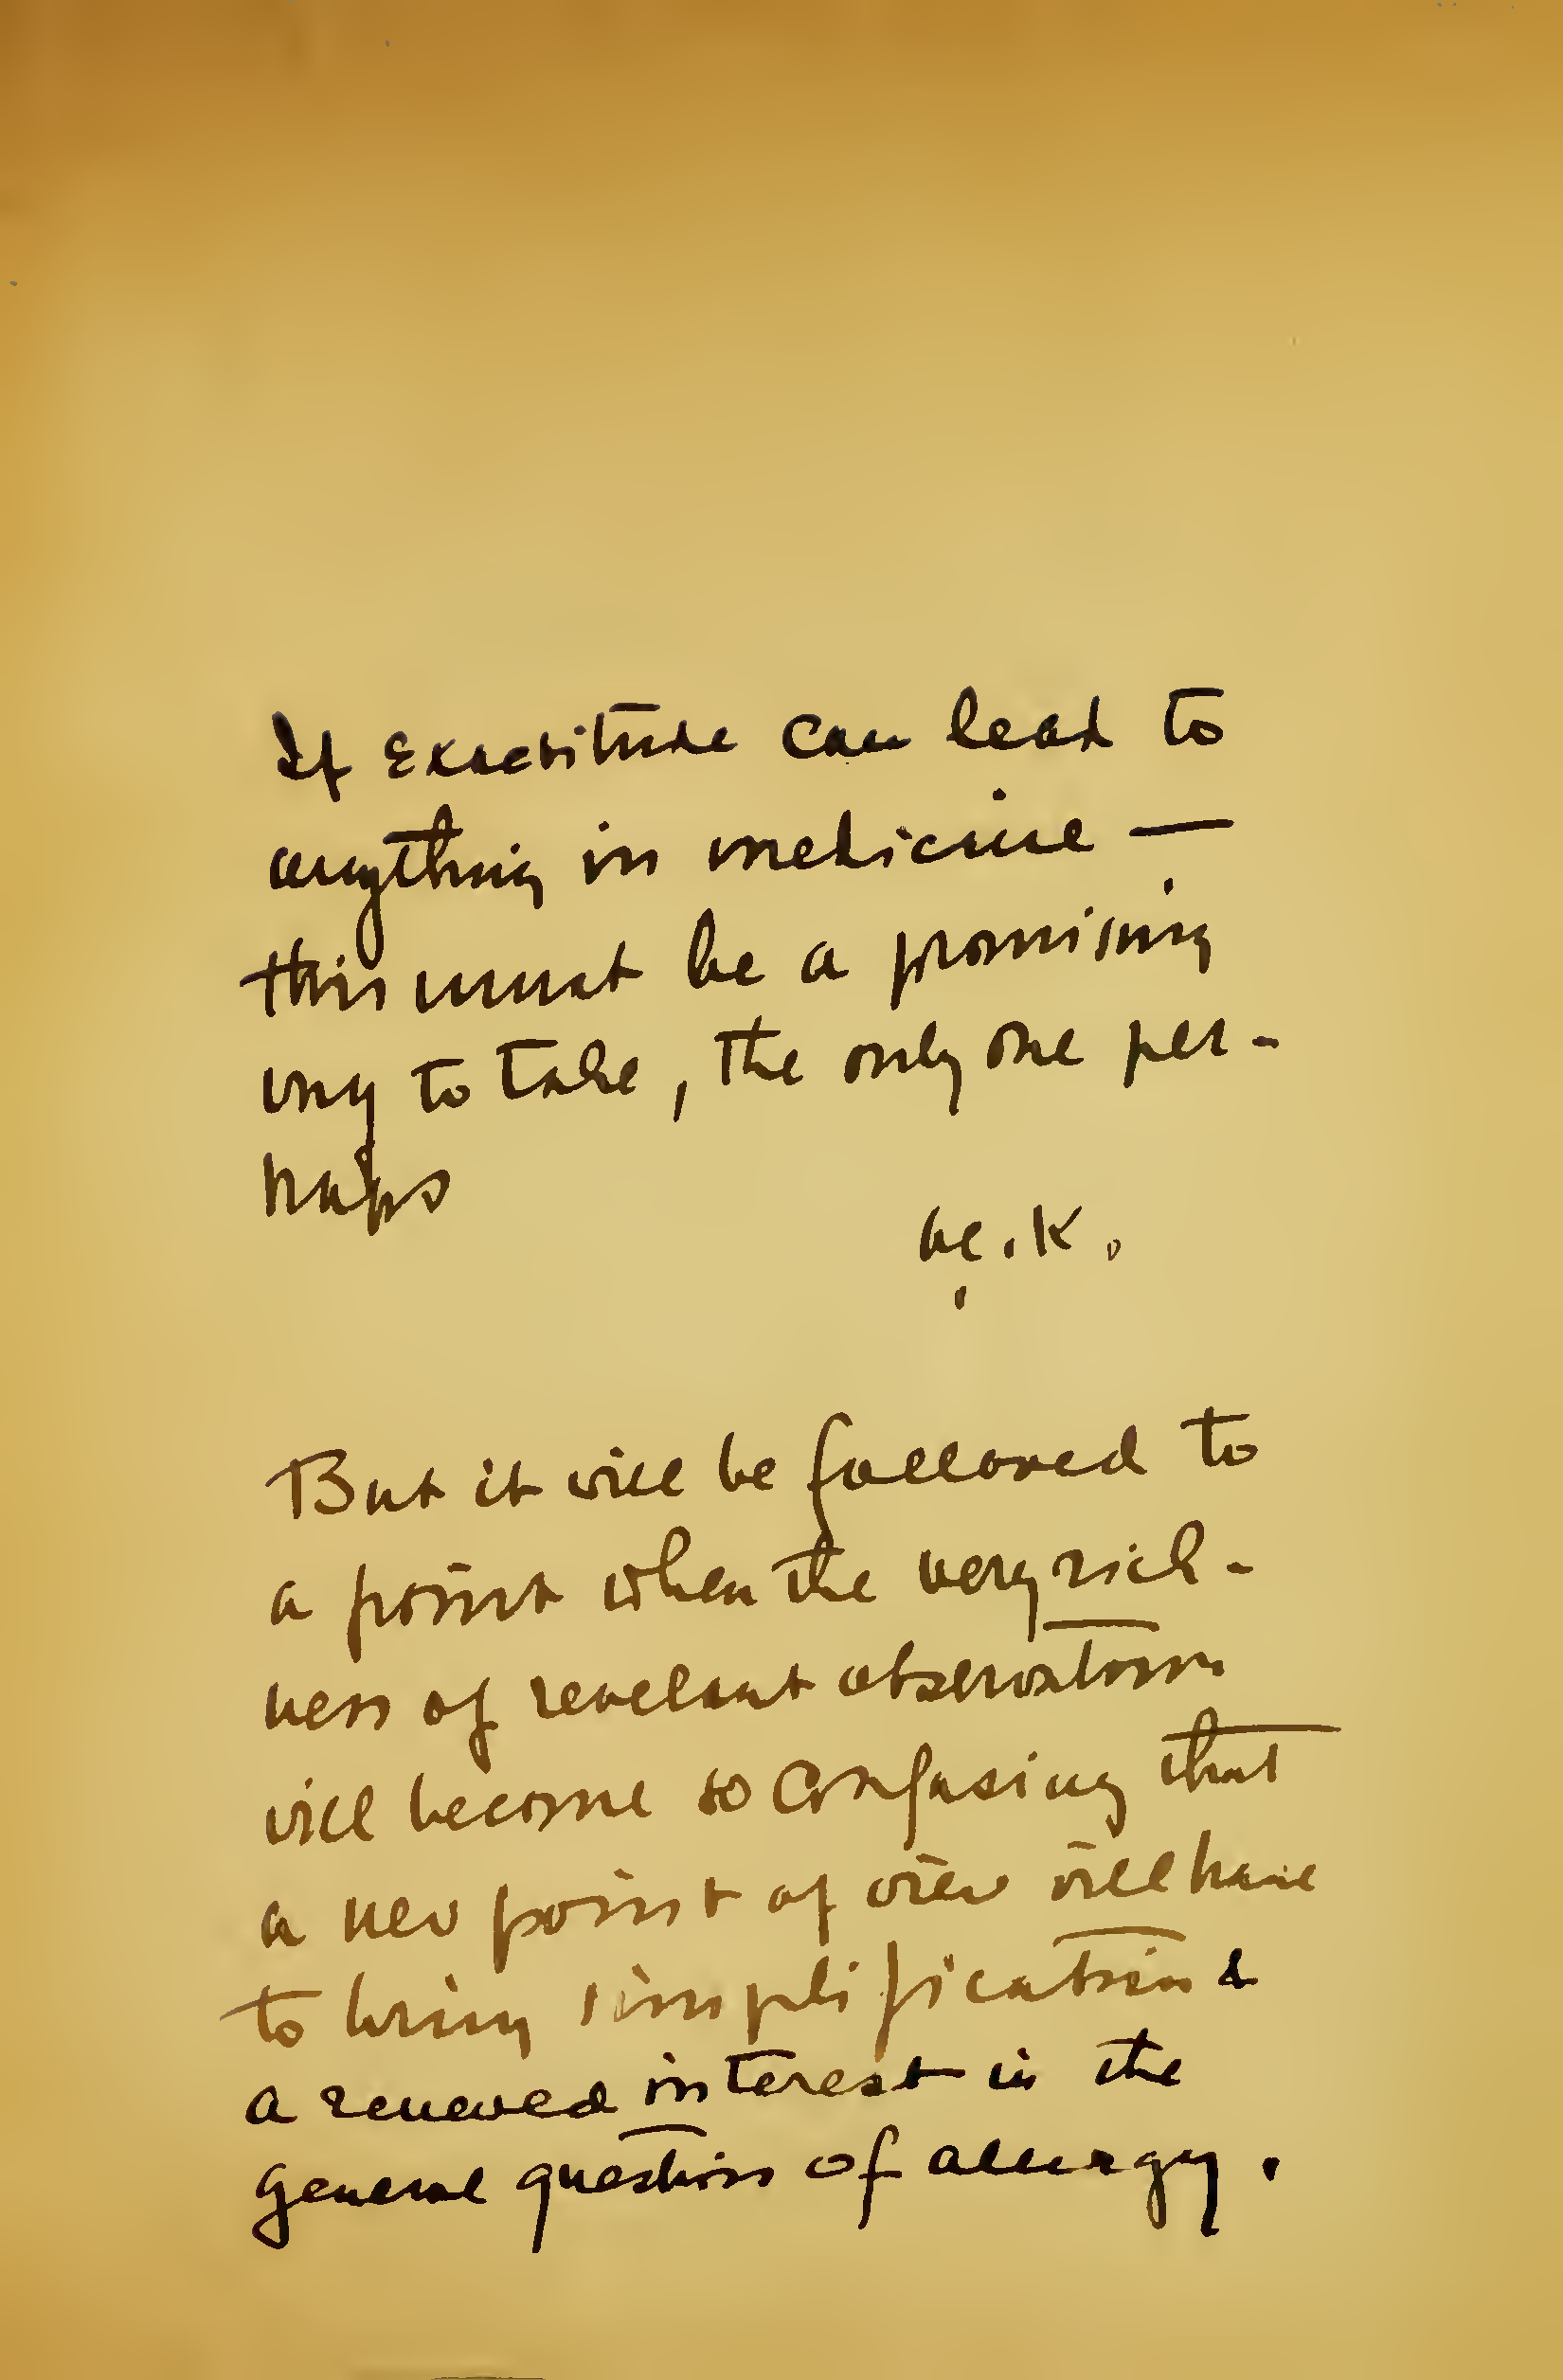 If exactitude can lead to
anything in medicine —
this must be a promising
way to take, the only one per-
haps
K.
But it will be followed to
a point when the very rich-
ness of revelant observations
will become so confusing that
a new point of view will have
to bring simplification &
a renewed interest in the
general question of allergy.